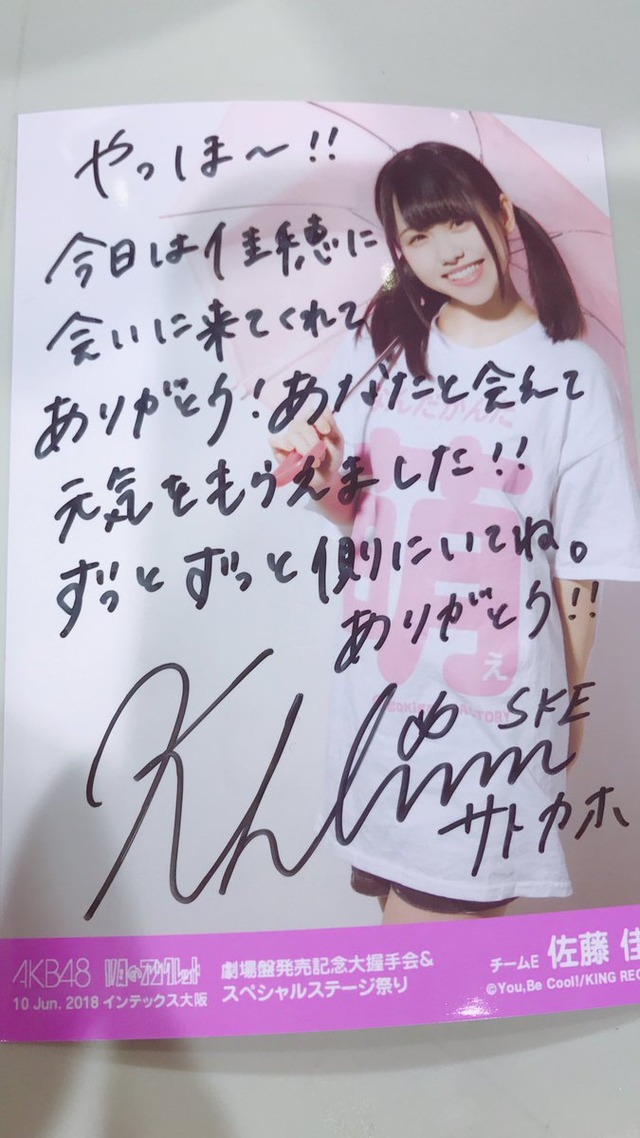 やっほ〜!!
今日は佳穂に
会いに来てくれて
ありがとう!あなたと会えて
元気をもらえました!!
ずっとずっと側にいてね。
ありがとう!!
なんだかんだ
萌
ぇ
SKE
サトカホ
AKB48 11月のアンクレット 劇場盤発売記念大握手会&
10 Jun. 2018 インテックス大阪 スペシャルステージ祭り
チームE 佐藤 佳
©You,Be Cool!/KING REC